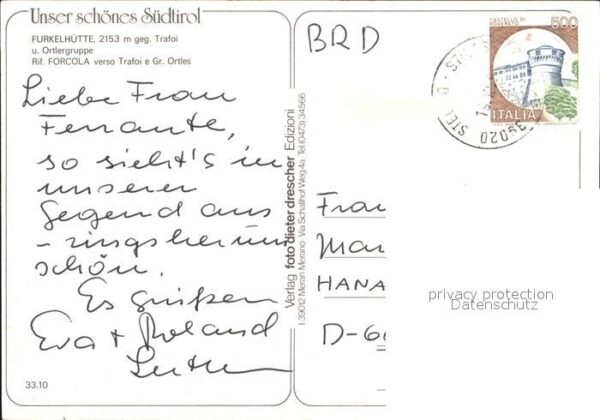 Unser schönes Südtirol
FURKELHÜTTE, 2153 m geg. Trafoi
u. Ortlergruppe
Rif. FORCOLA verso Trafoi e Gr. Ortles
Liebe Frau
Ferrante,
so sieht's in
unserer
Gegend aus
- ringsherum
schön.
Es grüßen
Eva + Roland
33.10
Verlag foto dieter drescher Edizioni
I-39012 Meran Merano · Via Schallhof Weg 4a Tel (0473) 34566
BRD
500
ITALIA
39020
Frau
HANA
D-6
privacy protection
Datenschutz